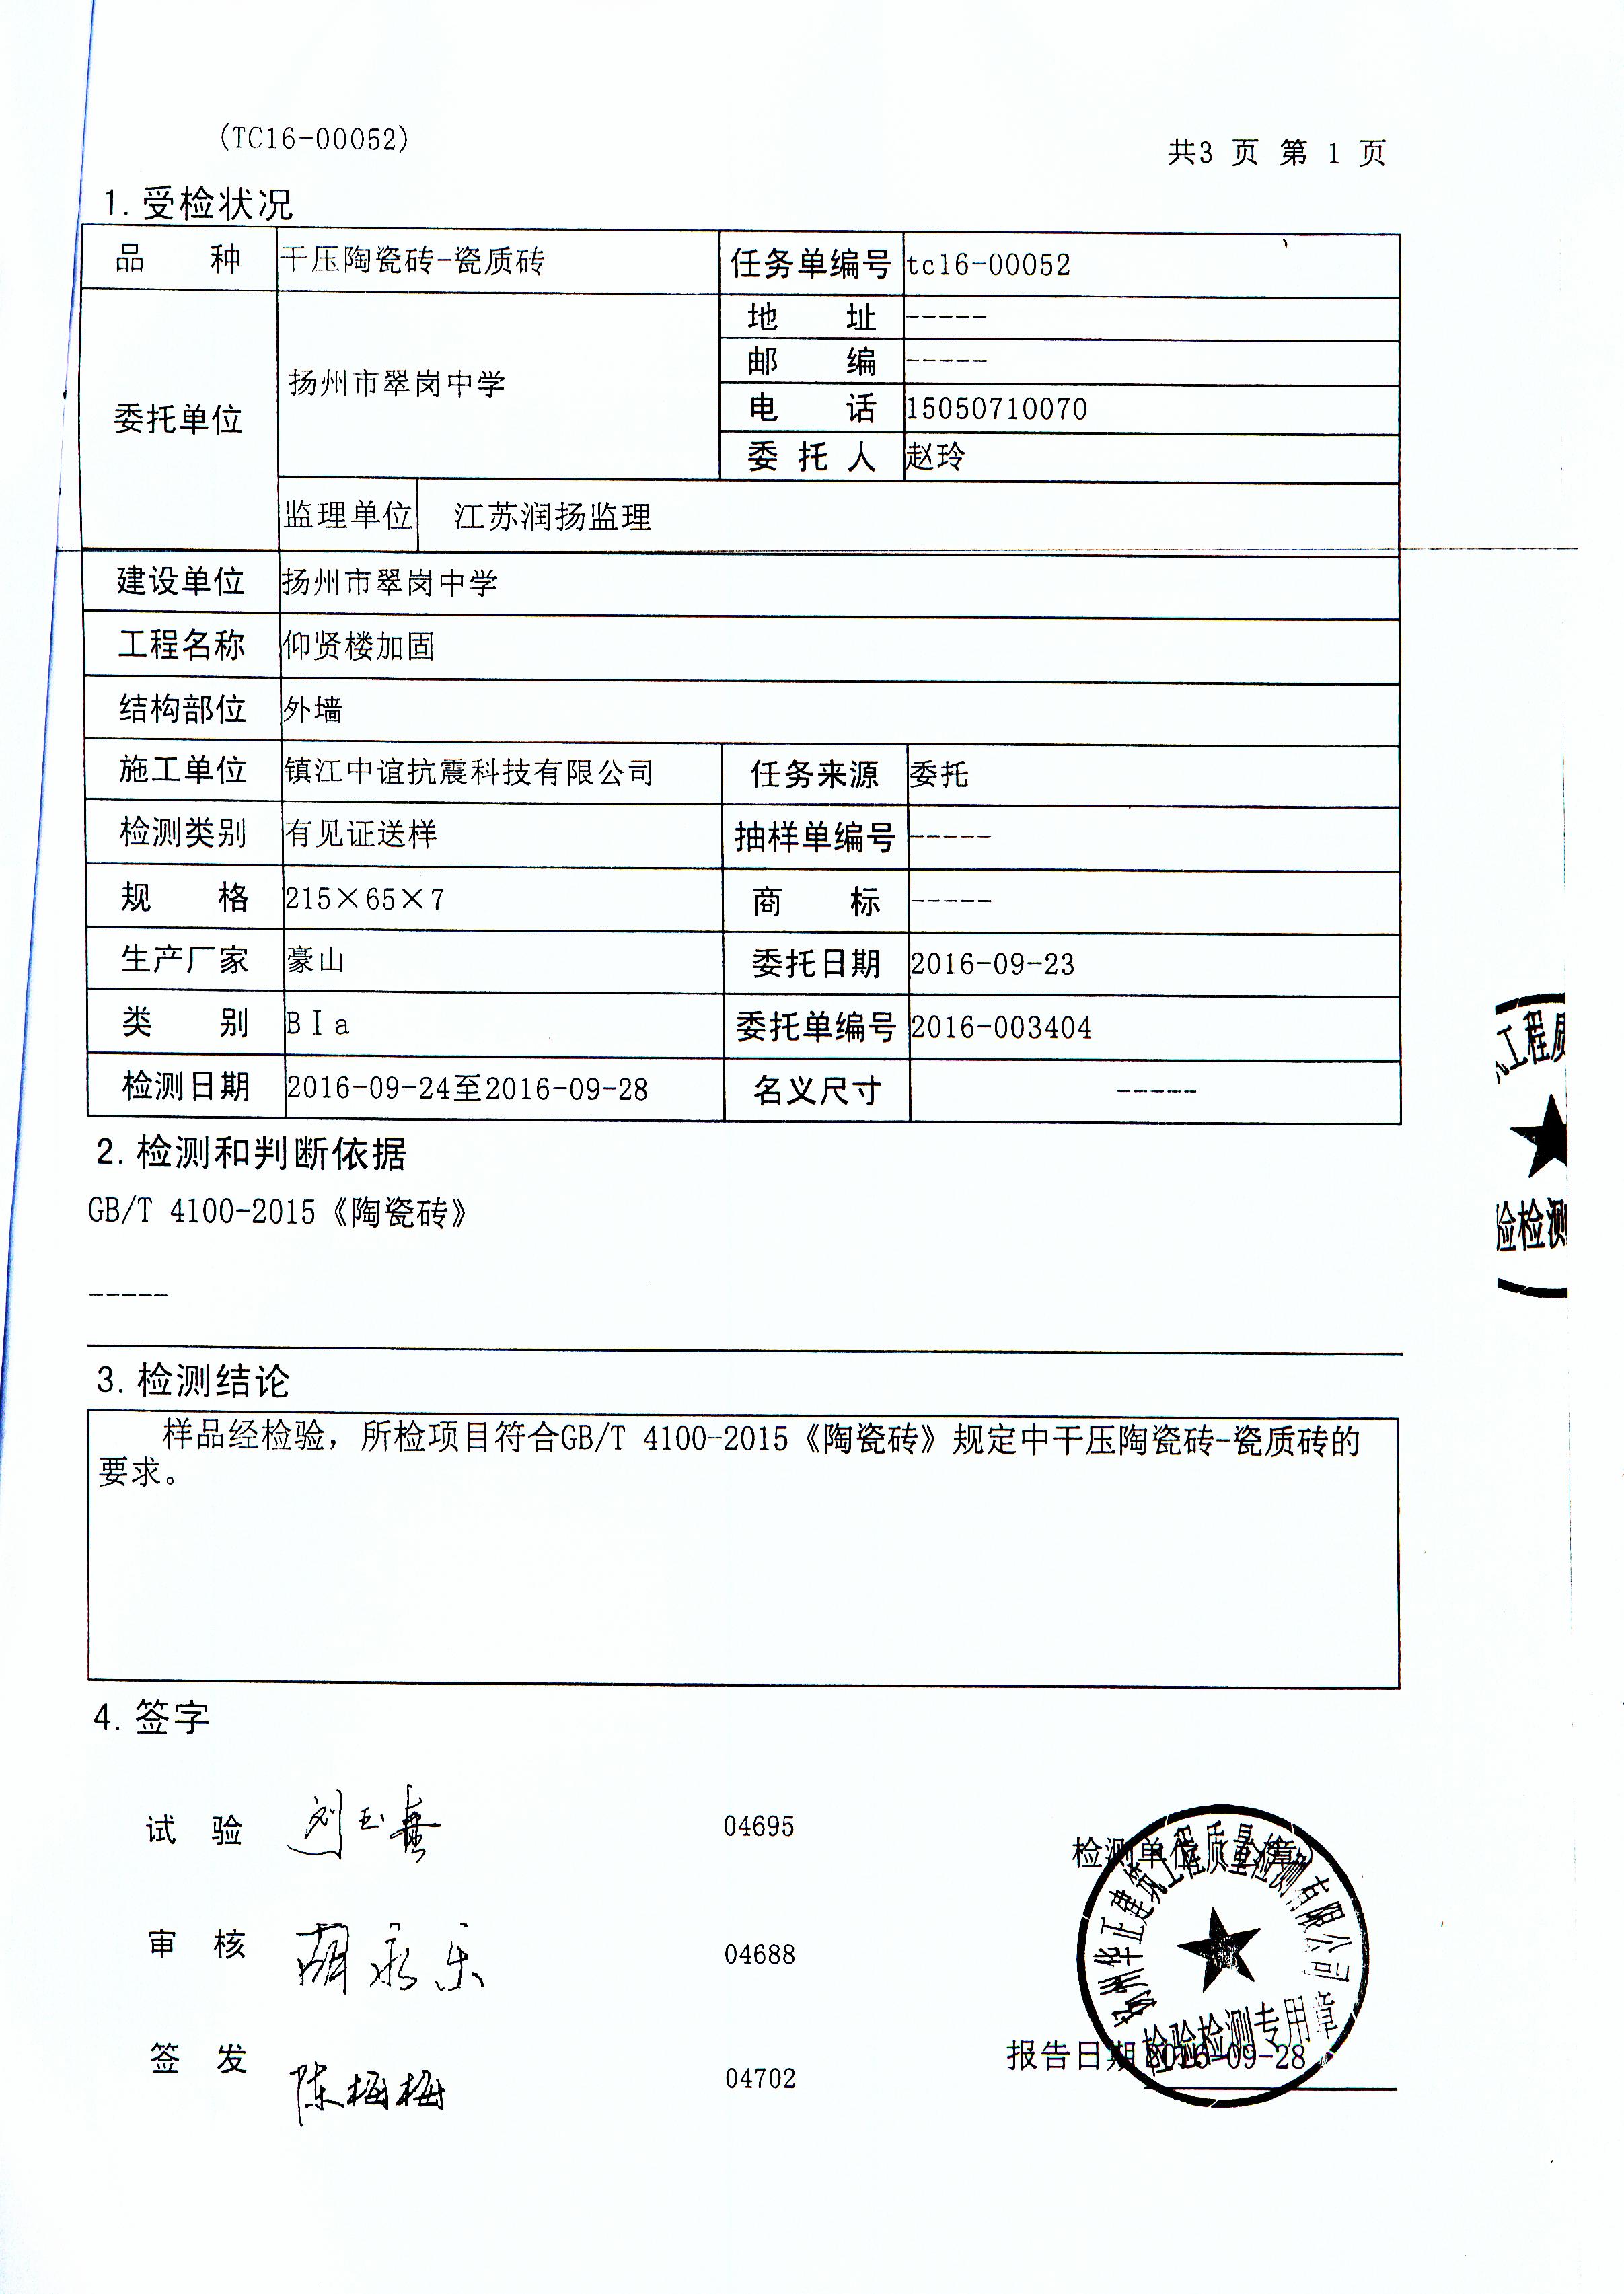 (TC16-00052)
共3 页 第 1 页
1.受检状况
品 种 干压陶瓷砖-瓷质砖 任务单编号 tc16-00052
委托单位 扬州市翠岗中学 地 址 -----
邮 编 -----
电 话 15050710070
委 托 人 赵玲
监理单位 江苏润扬监理
建设单位 扬州市翠岗中学
工程名称 仰贤楼加固
结构部位 外墙
施工单位 镇江中谊抗震科技有限公司 任务来源 委托
检测类别 有见证送样 抽样单编号 -----
规 格 215×65×7 商 标 -----
生产厂家 豪山 委托日期 2016-09-23
类 别 BⅠa 委托单编号 2016-003404
检测日期 2016-09-24至2016-09-28 名义尺寸 -----
2.检测和判断依据
GB/T 4100-2015《陶瓷砖》
-----
3.检测结论
样品经检验，所检项目符合GB/T 4100-2015《陶瓷砖》规定中干压陶瓷砖-瓷质砖的
要求。
4.签字
试 验 刘玉 04695
检测单位（公章）
审 核 胡永乐 04688
签 发 陈梅梅 04702
报告日期 2016-09-28
扬州华正建筑工程质量检测有限公司
检验检测专用章
工程质
验检测